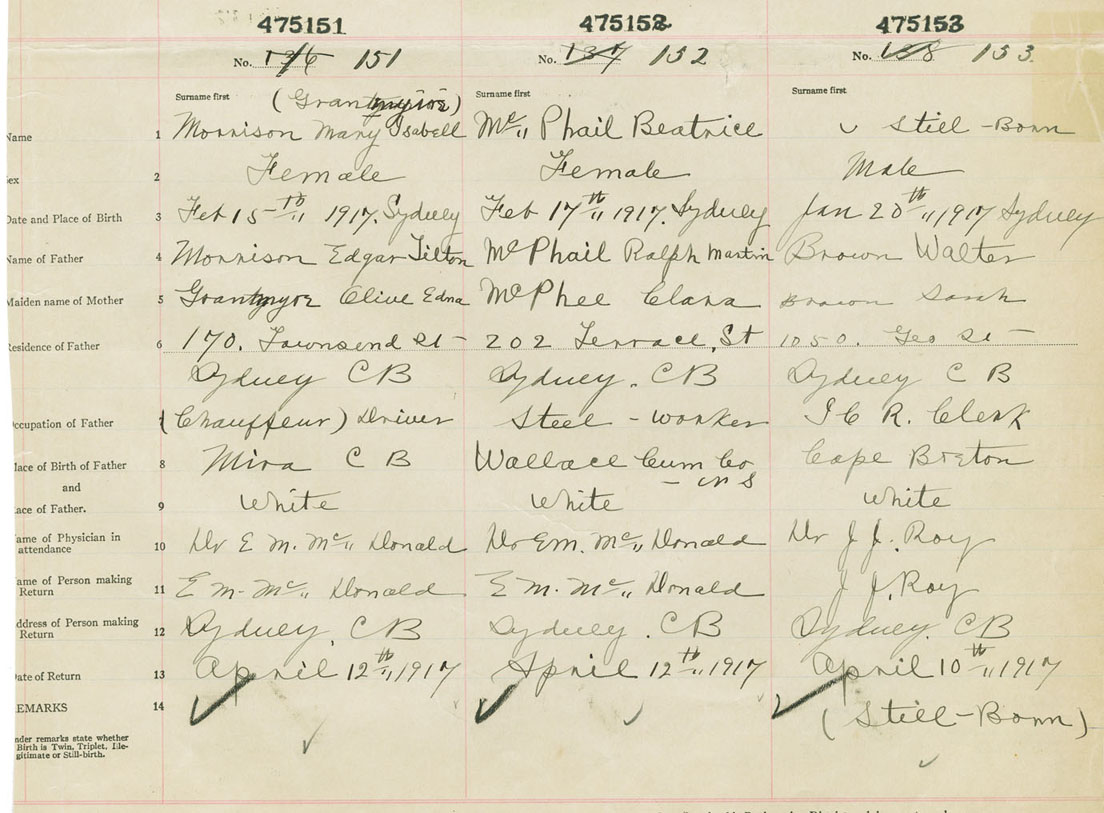 475151 475152 475153
No. 136 151 No. 137 152 No. 138 153
Surname first Surname first Surname first
(Grantmyre)
Name 1 Morrison Mary Isabell Mc" Phail Beatrice Still-Born
Sex 2 Female Female Male
Date and Place of Birth 3 Feb 15-th" 1917. Sydney Feb 17th" 1917. Sydney Jan 20th" 1917 Sydney
Name of Father 4 Morrison Edgar Tilton McPhail Ralph Martin Brown Walter
Maiden name of Mother 5 Grantmyre Olive Edna McPhee Clara Brown Sarah
Residence of Father 6 170. Townsend St- 202 Terrace, St 1050. Geo St-
Sydney CB Sydney. CB Sydney C B
Occupation of Father 7 (Chauffeur) Driver Steel-worker I C R. Clerk
Place of Birth of Father 8 Mira C B Wallace Cum Co Cape Breton
and - N S
Race of Father. 9 White White White
Name of Physician in attendance 10 Dr E M. Mc" Donald Dr E M. Mc" Donald Dr J J. Roy
Name of Person making Return 11 E M. Mc" Donald E M. Mc" Donald J J. Roy
Address of Person making Return 12 Sydney, CB Sydney. CB Sydney. CB
Date of Return 13 April 12th" 1917 April 12th" 1917 April 10th" 1917
REMARKS 14 (Still-Born)
Under remarks state whether
Birth is Twin, Triplet, Ille-
gitimate or Still-birth.